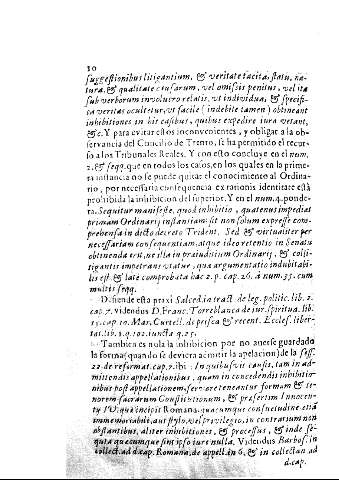 10
suggestionibus litigantium, & veritate tacita, statu, na-
tura, & qualitate causarum, vel omissis penitus, vel ita
sub verborum involucro relatis, ut individua, & specifi-
ca veritas occultetur, ut facile (indebite tamen) obtineant
inhibitiones in his casibus, quibus expedire iura vetant,
&c. Y para evitar estos inconvenientes, y obligar a la ob-
servancia del Concilio de Trento, se ha permitido el recur-
so a los Tribunales Reales. Y con esto concluye en el num.
2. & seqq. que en todos los casos, en los quales en la prime-
ra instancia no se puede quitar el conocimiento al Ordina-
rio, por necessaria consequencia ex rationis identitate està
prohibida la inhibicion del superior. Y en el num. 4. ponde-
ra. Sequitur manifestè, quod inhibitio, quatenus impediet
primam Ordinarij instantiam: sit non solum expressè com-
prehensa in dicto decreto Trident. Sed & virtualiter per
necessariam consequentiam, atque ideo retentio in Senatu
obtinenda erit, ne illa in praeiuditium Ordinarij, & coliti-
gantis impetrans utatur, qua argumentatio indubitabi-
lis est, & late comprobata hac 2. p. cap. 26. à num. 35. cum
multis seqq.
Defiende esta praxi Salced. in tract. de leg. politic. lib. 2.
cap. 7. videndus D. Franc. Torreblanca de iur. spiritua. lib.
15. cap. 10. Mar. Curtell. de prisca & recent. Eccles. liber-
tat. lib. 3. q. 102. iuncta q. 25.
Tambien es nula la inhibicion por no averse guardado
la forma (quando se deviera admitir la apelacion) de la sess.
22. de reformat. cap. 7. ibi: In quibusvis causis, tam in ad-
mittendis appellationibus, quam in concedendis inhibitio-
nibus post appellationem, servare teneantur formam & te-
norem sacrarum Constitutionum, & praesertim Innocen-
ty IV. quae incipit Romana, quacumque consuetudine etiā
immemorabili, aut stylo, vel privilegio, in contrarium non
obstantibus, aliter inhibitiones, & processus, & inde se-
quuta quaecumque sint ipso iure nulla. Videndus Barbos. in
collect. ad d. cap. Romana, de appell. in 6. & in collectan ad
d. cap.